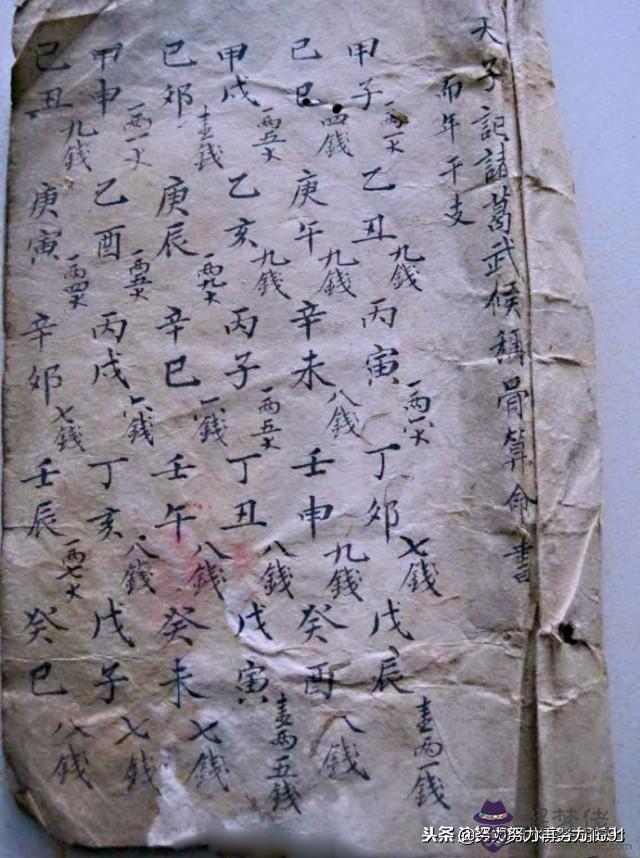 天子記諸葛武候稱骨算命書
而年干支
甲子 一两一 乙丑 九錢 丙寅 一两八 丁卯 七錢 戊辰 壹两一錢
己巳 四錢 庚午 九錢 辛未 八錢 壬申 九錢 癸酉 八錢
甲戌 一两五 乙亥 九錢 丙子 一两五 丁丑 八錢 戊寅 壹两五錢
己卯 壹錢 庚辰 一两九 辛巳 錢 壬午 八錢 癸未 七錢
甲申 一两一 乙酉 一两五 丙戌 六錢 丁亥 八錢 戊子 七錢
己丑 九錢 庚寅 一两四 辛卯 七錢 壬辰 一两七 癸巳 八錢
头条 @努力努力再努力1691